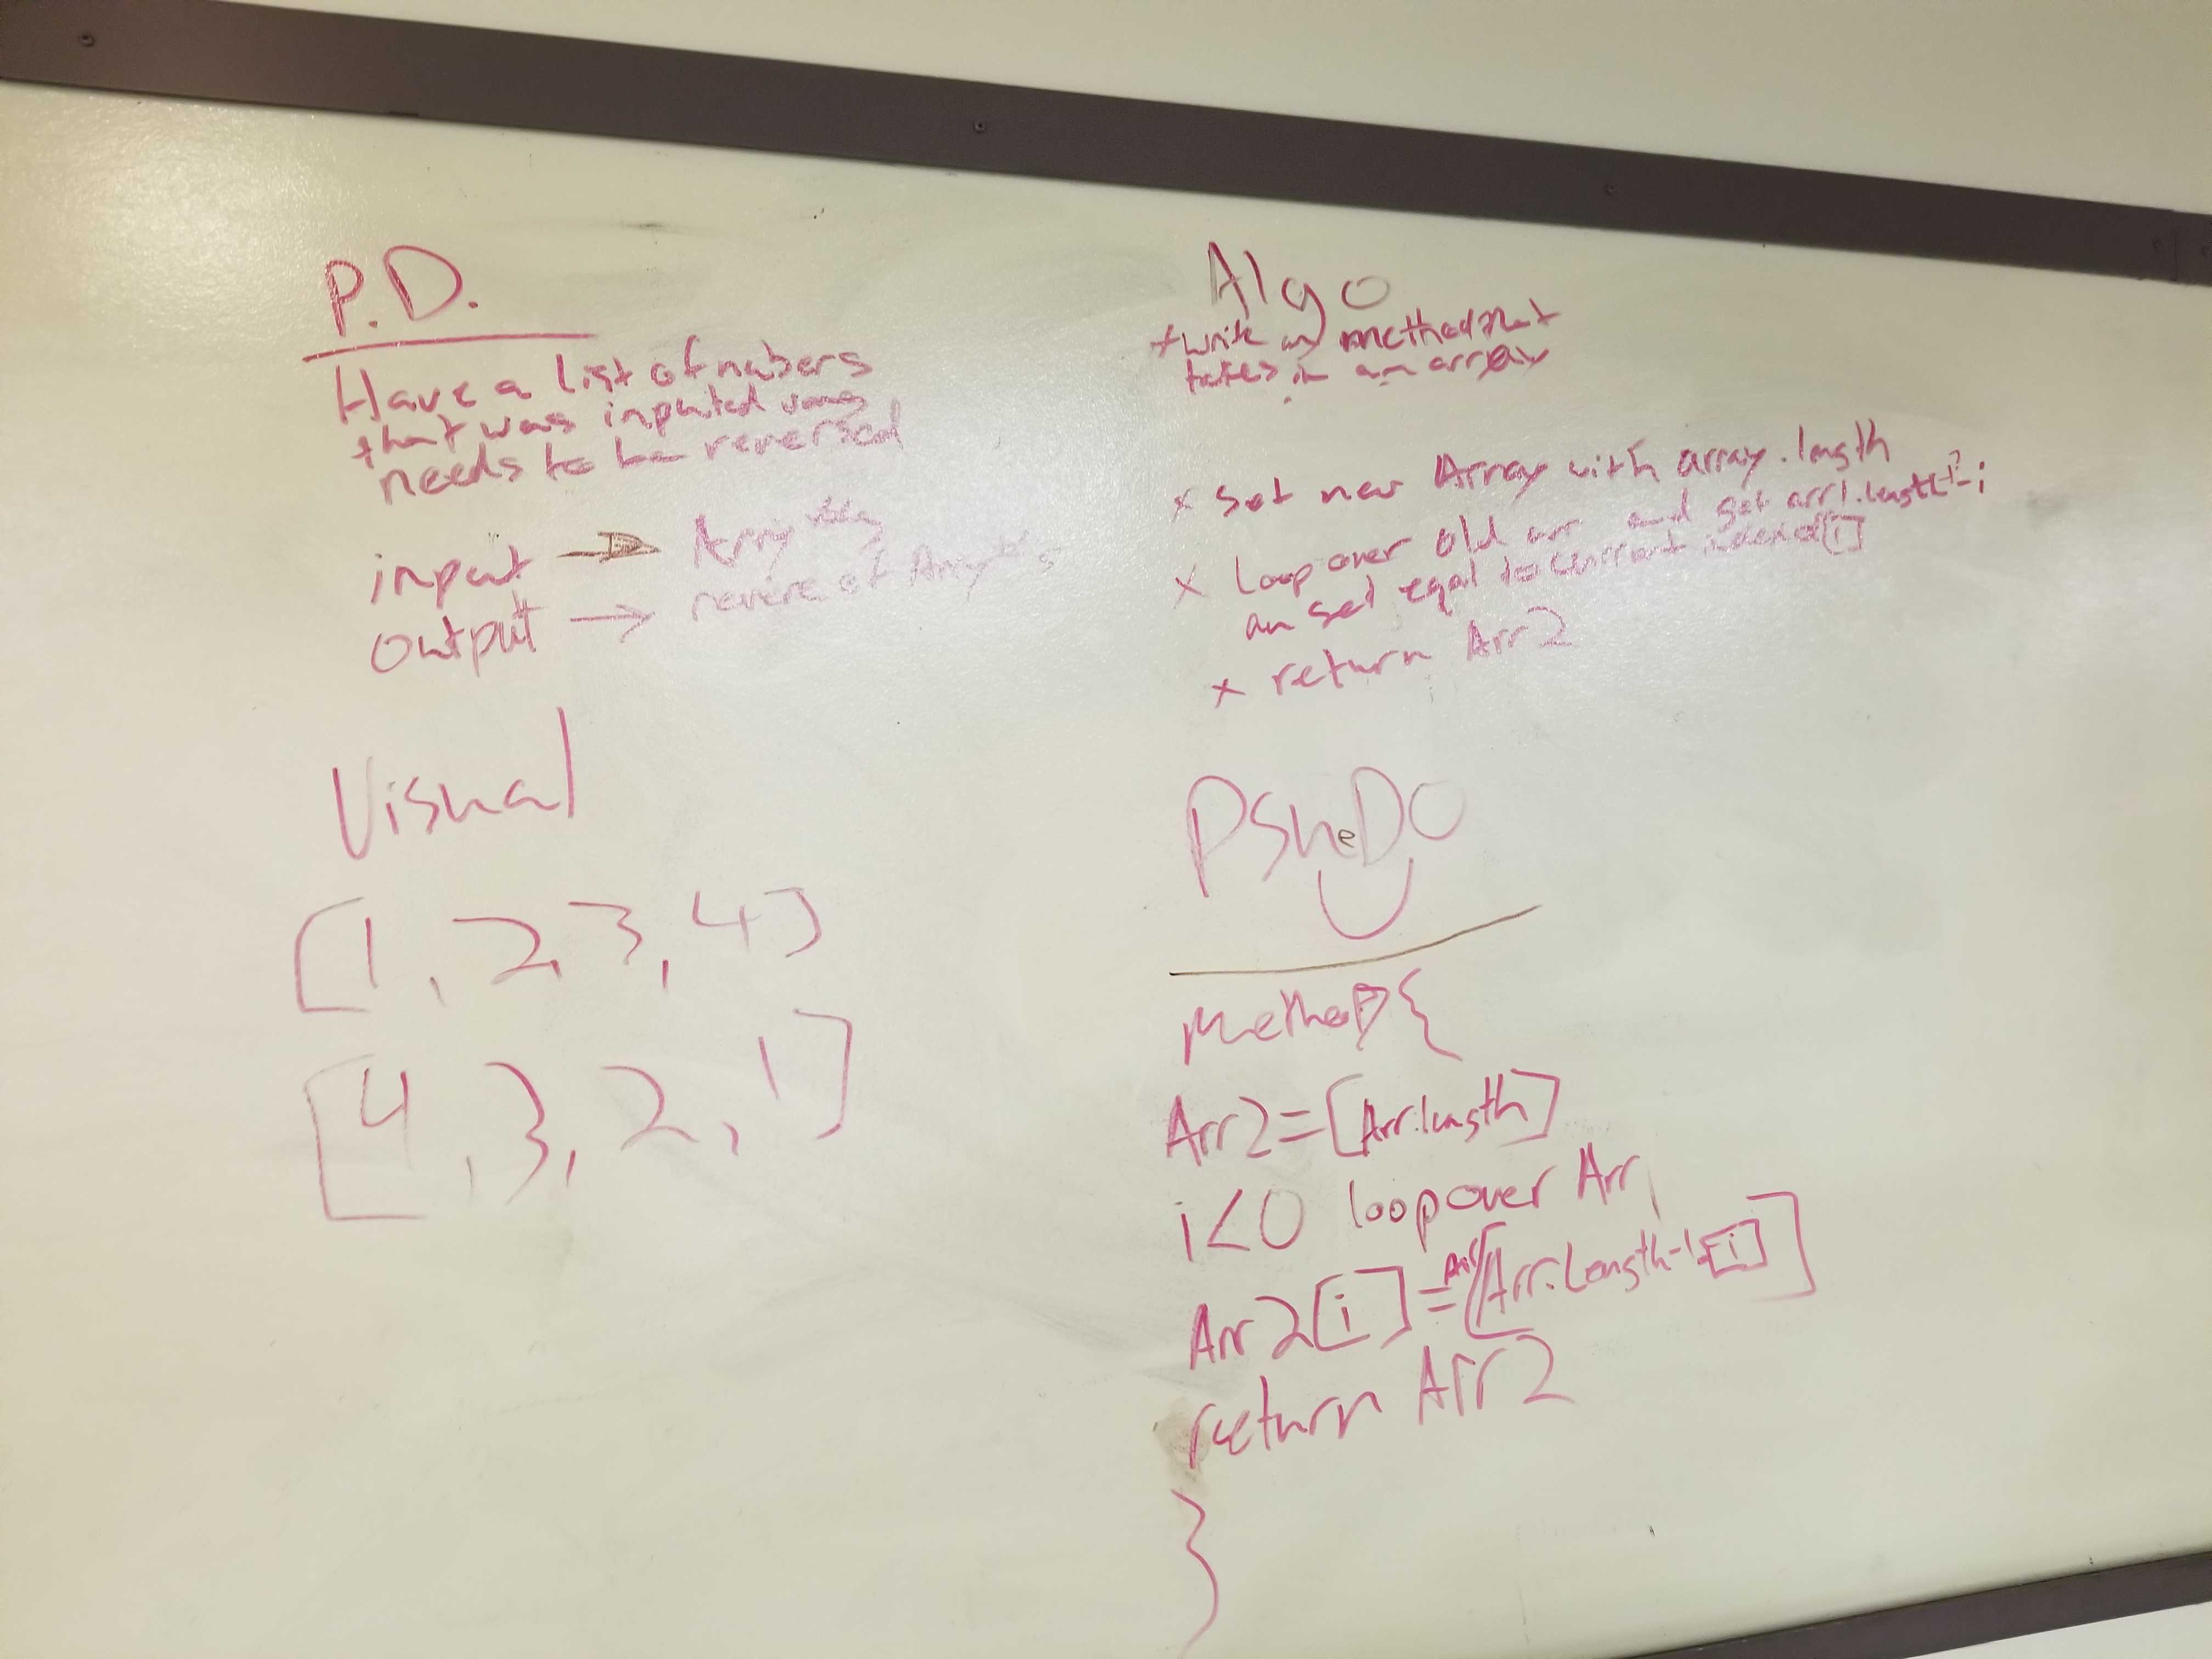 P.D.
Have a list of nubers
that was inputed
needs to be reversed
input → Array
output → revere of Array's
Visual
[1, 2, 3, 4]
[4, 3, 2, 1]
Algo
write method that
takes in an array
x set new Array with array.length
x Loop over old arr and get arr1.length-1-i
an set equal to current index of [i]
x return Arr2
PSueDO
MethoD {
Arr2=[Arr.length]
i<0 loop over Arr
Arr2[i]=Arr[Arr.Length-1-[i]]
return Arr2
}